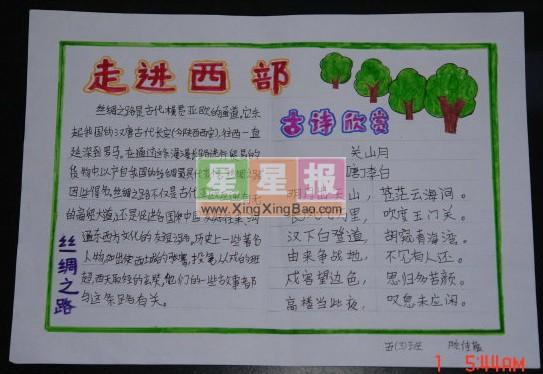 走进西部
丝绸之路是古代横贯亚欧的通道,它东
起我国的汉唐古代长安(今陕西西安),往西一直
延深到罗马。在通过这条漫漫长路进行贸易的
货物中,以产自我国的丝绸最具代表性,丝绸之路
因此得名。丝绸之路不仅是古代
的商贸大道,还是促进各国和中
通东西方文化的友谊之路。历史上一些著名
人物,如出使西域的张骞,投笔从戎的班
超,西天取经的玄奘,他们的一些故事都
与这条路有关。
丝绸之路
古诗欣赏
关山月
唐李白
明月出天山,苍茫云海间。
里,吹度玉门关。
汉下白登道,胡窥青海湾。
由来争战地,不见有人还。
戍客望边色,思归多苦颜。
高楼当此夜,叹息未应闲。
星星报
www.XingXingBao.com
五(3)班
1 5:44AM